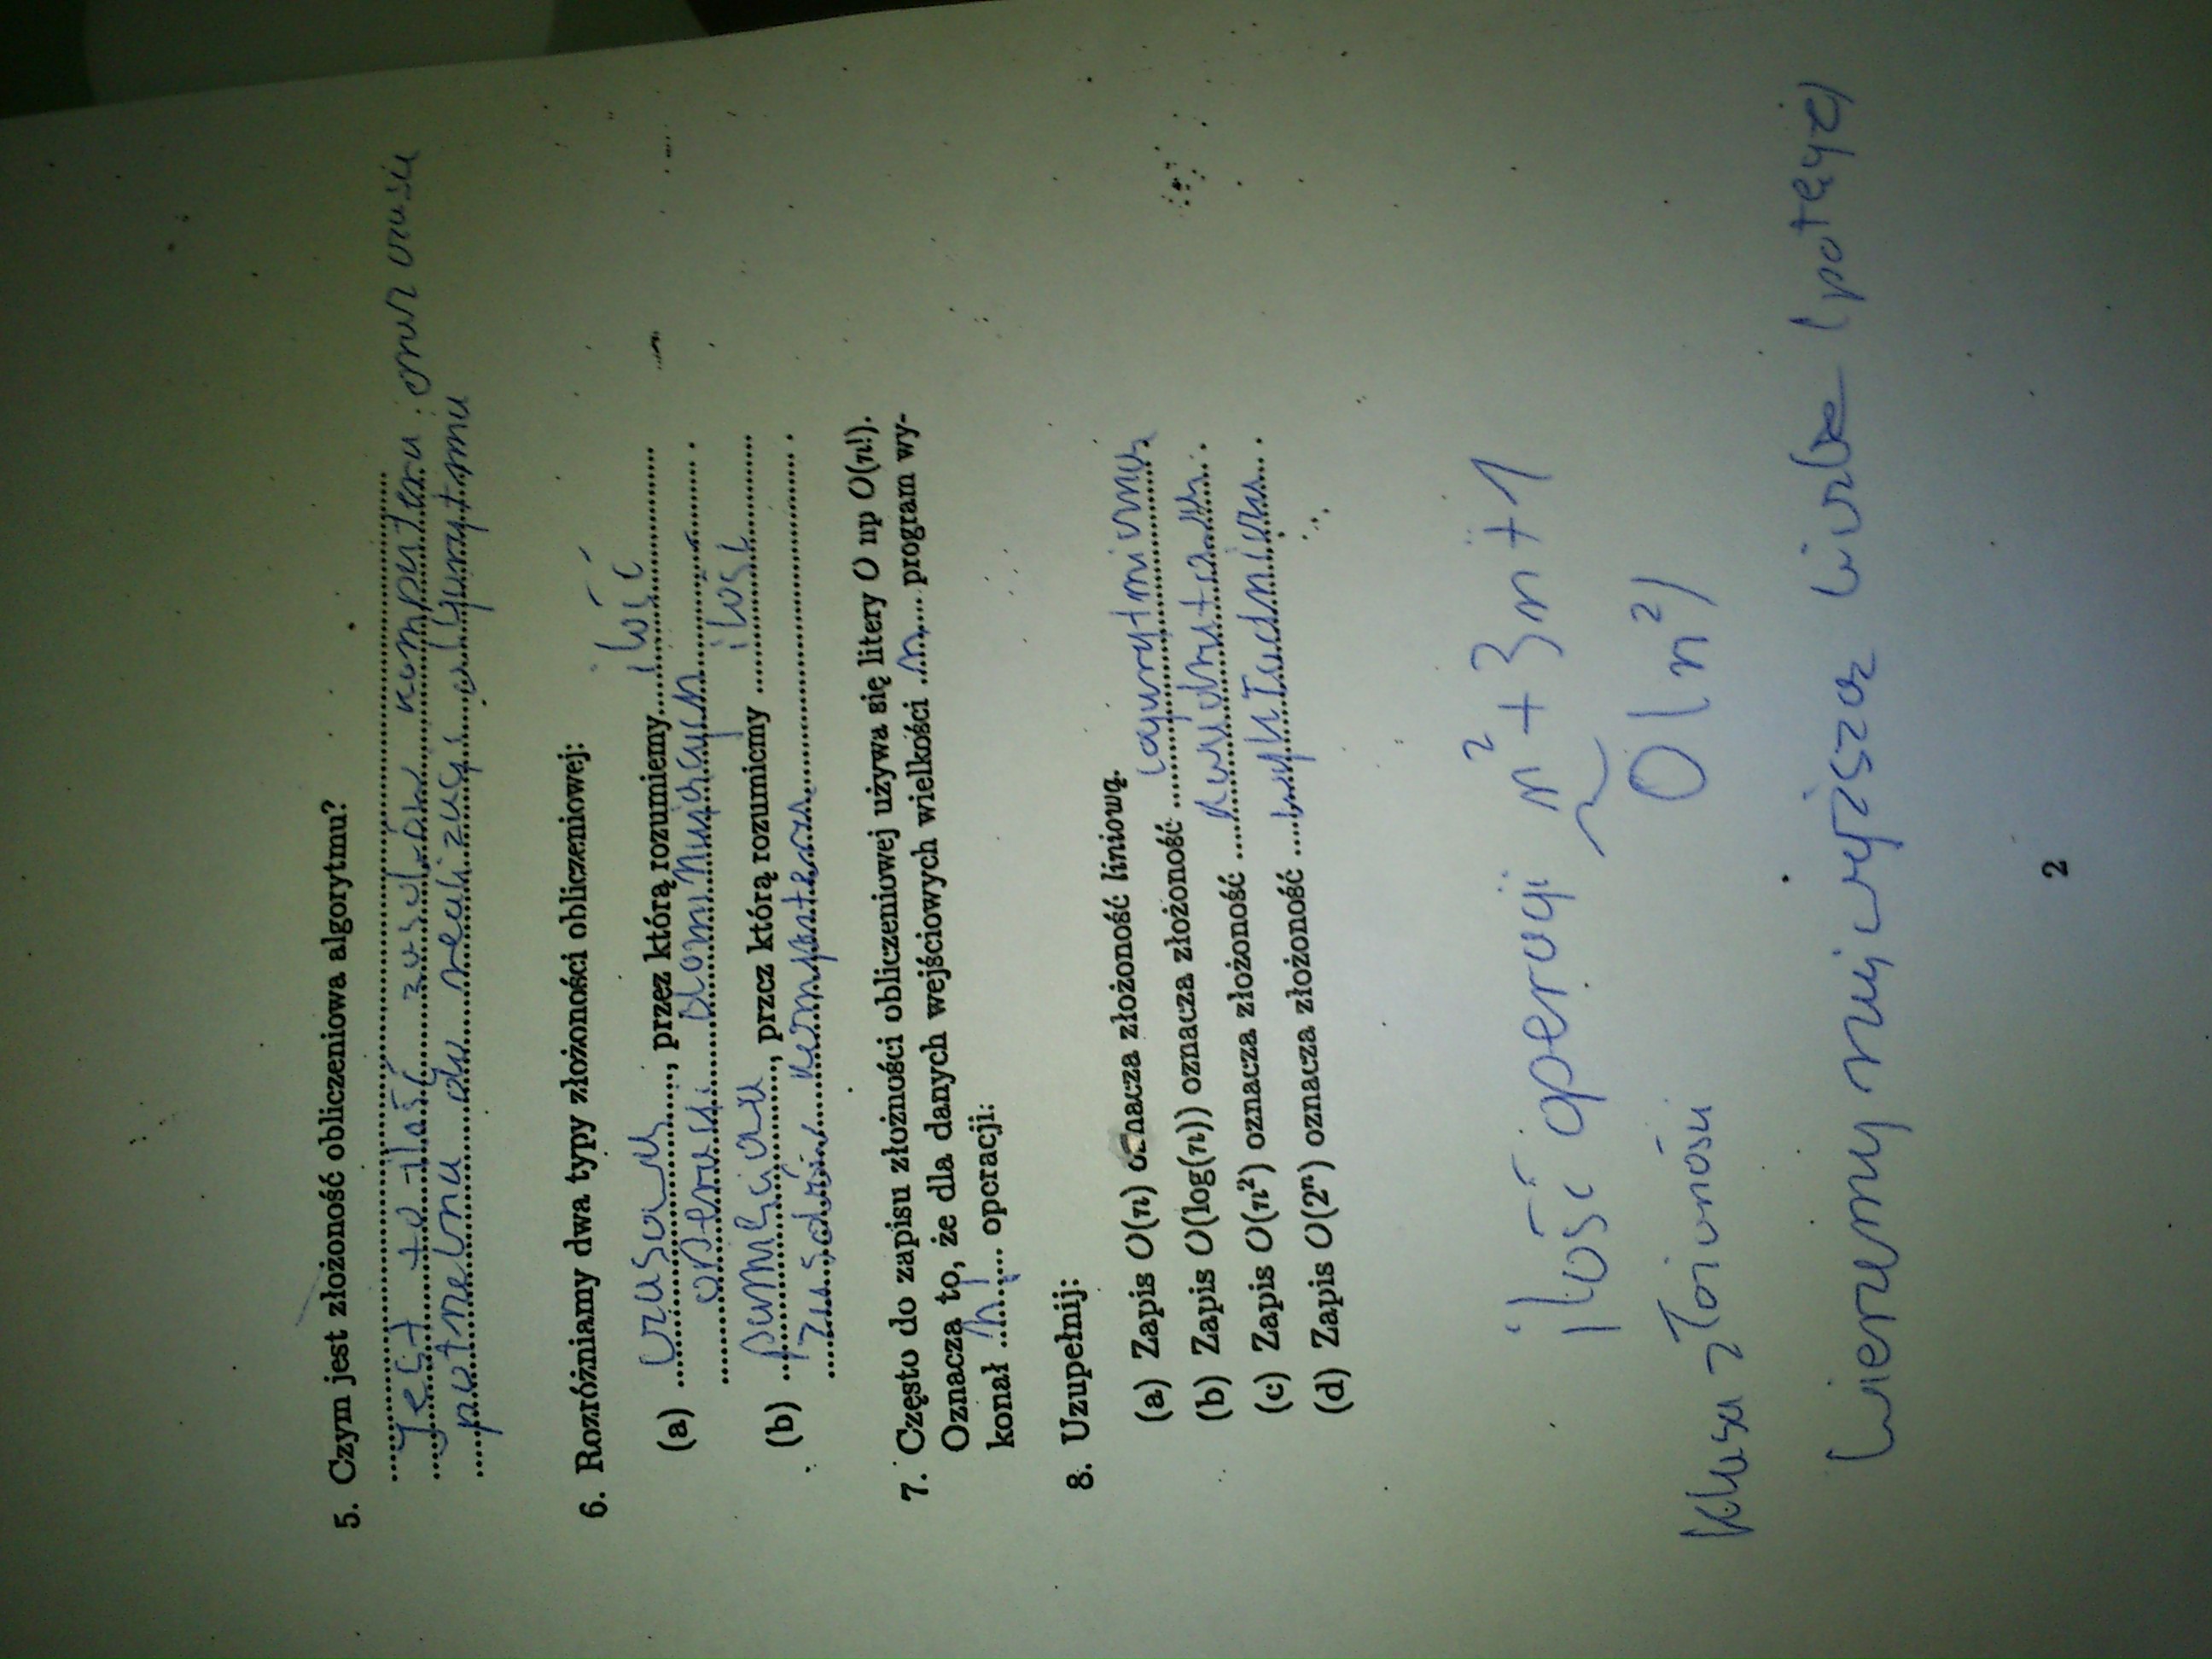 5. Czym jest złożoność obliczeniowa algorytmu?
Jest to ilość zasobów komputera oraz czasu
potrzebna do realizacji algorytmu
6. Rozróżniamy dwa typy złożoności obliczeniowej:
(a) czasowa, przez którą rozumiemy ilość
operacji dominujących
(b) pamięciowa, przez którą rozumiemy ilość
zasobów komputera
7. Często do zapisu złożności obliczeniowej używa się litery O np O(n!).
Oznacza to, że dla danych wejściowych wielkości n program wy-
konał n! operacji:
8. Uzupełnij:
(a) Zapis O(n) oznacza złożoność liniową.
(b) Zapis O(log(n)) oznacza złożoność logarytmiczna
(c) Zapis O(n²) oznacza złożoność kwadratowa
(d) Zapis O(2ⁿ) oznacza złożoność wykładnicza
ilość operacji n² + 3n + 1
klasa złożoności O(n²)
bierzemy najwyższa liczbe (potęgę)
2